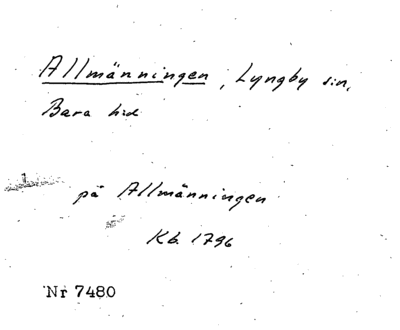 Allmänningen, Lyngby sn,
Bara hd
på Allmänningen
Kb. 1796
Nr 7480